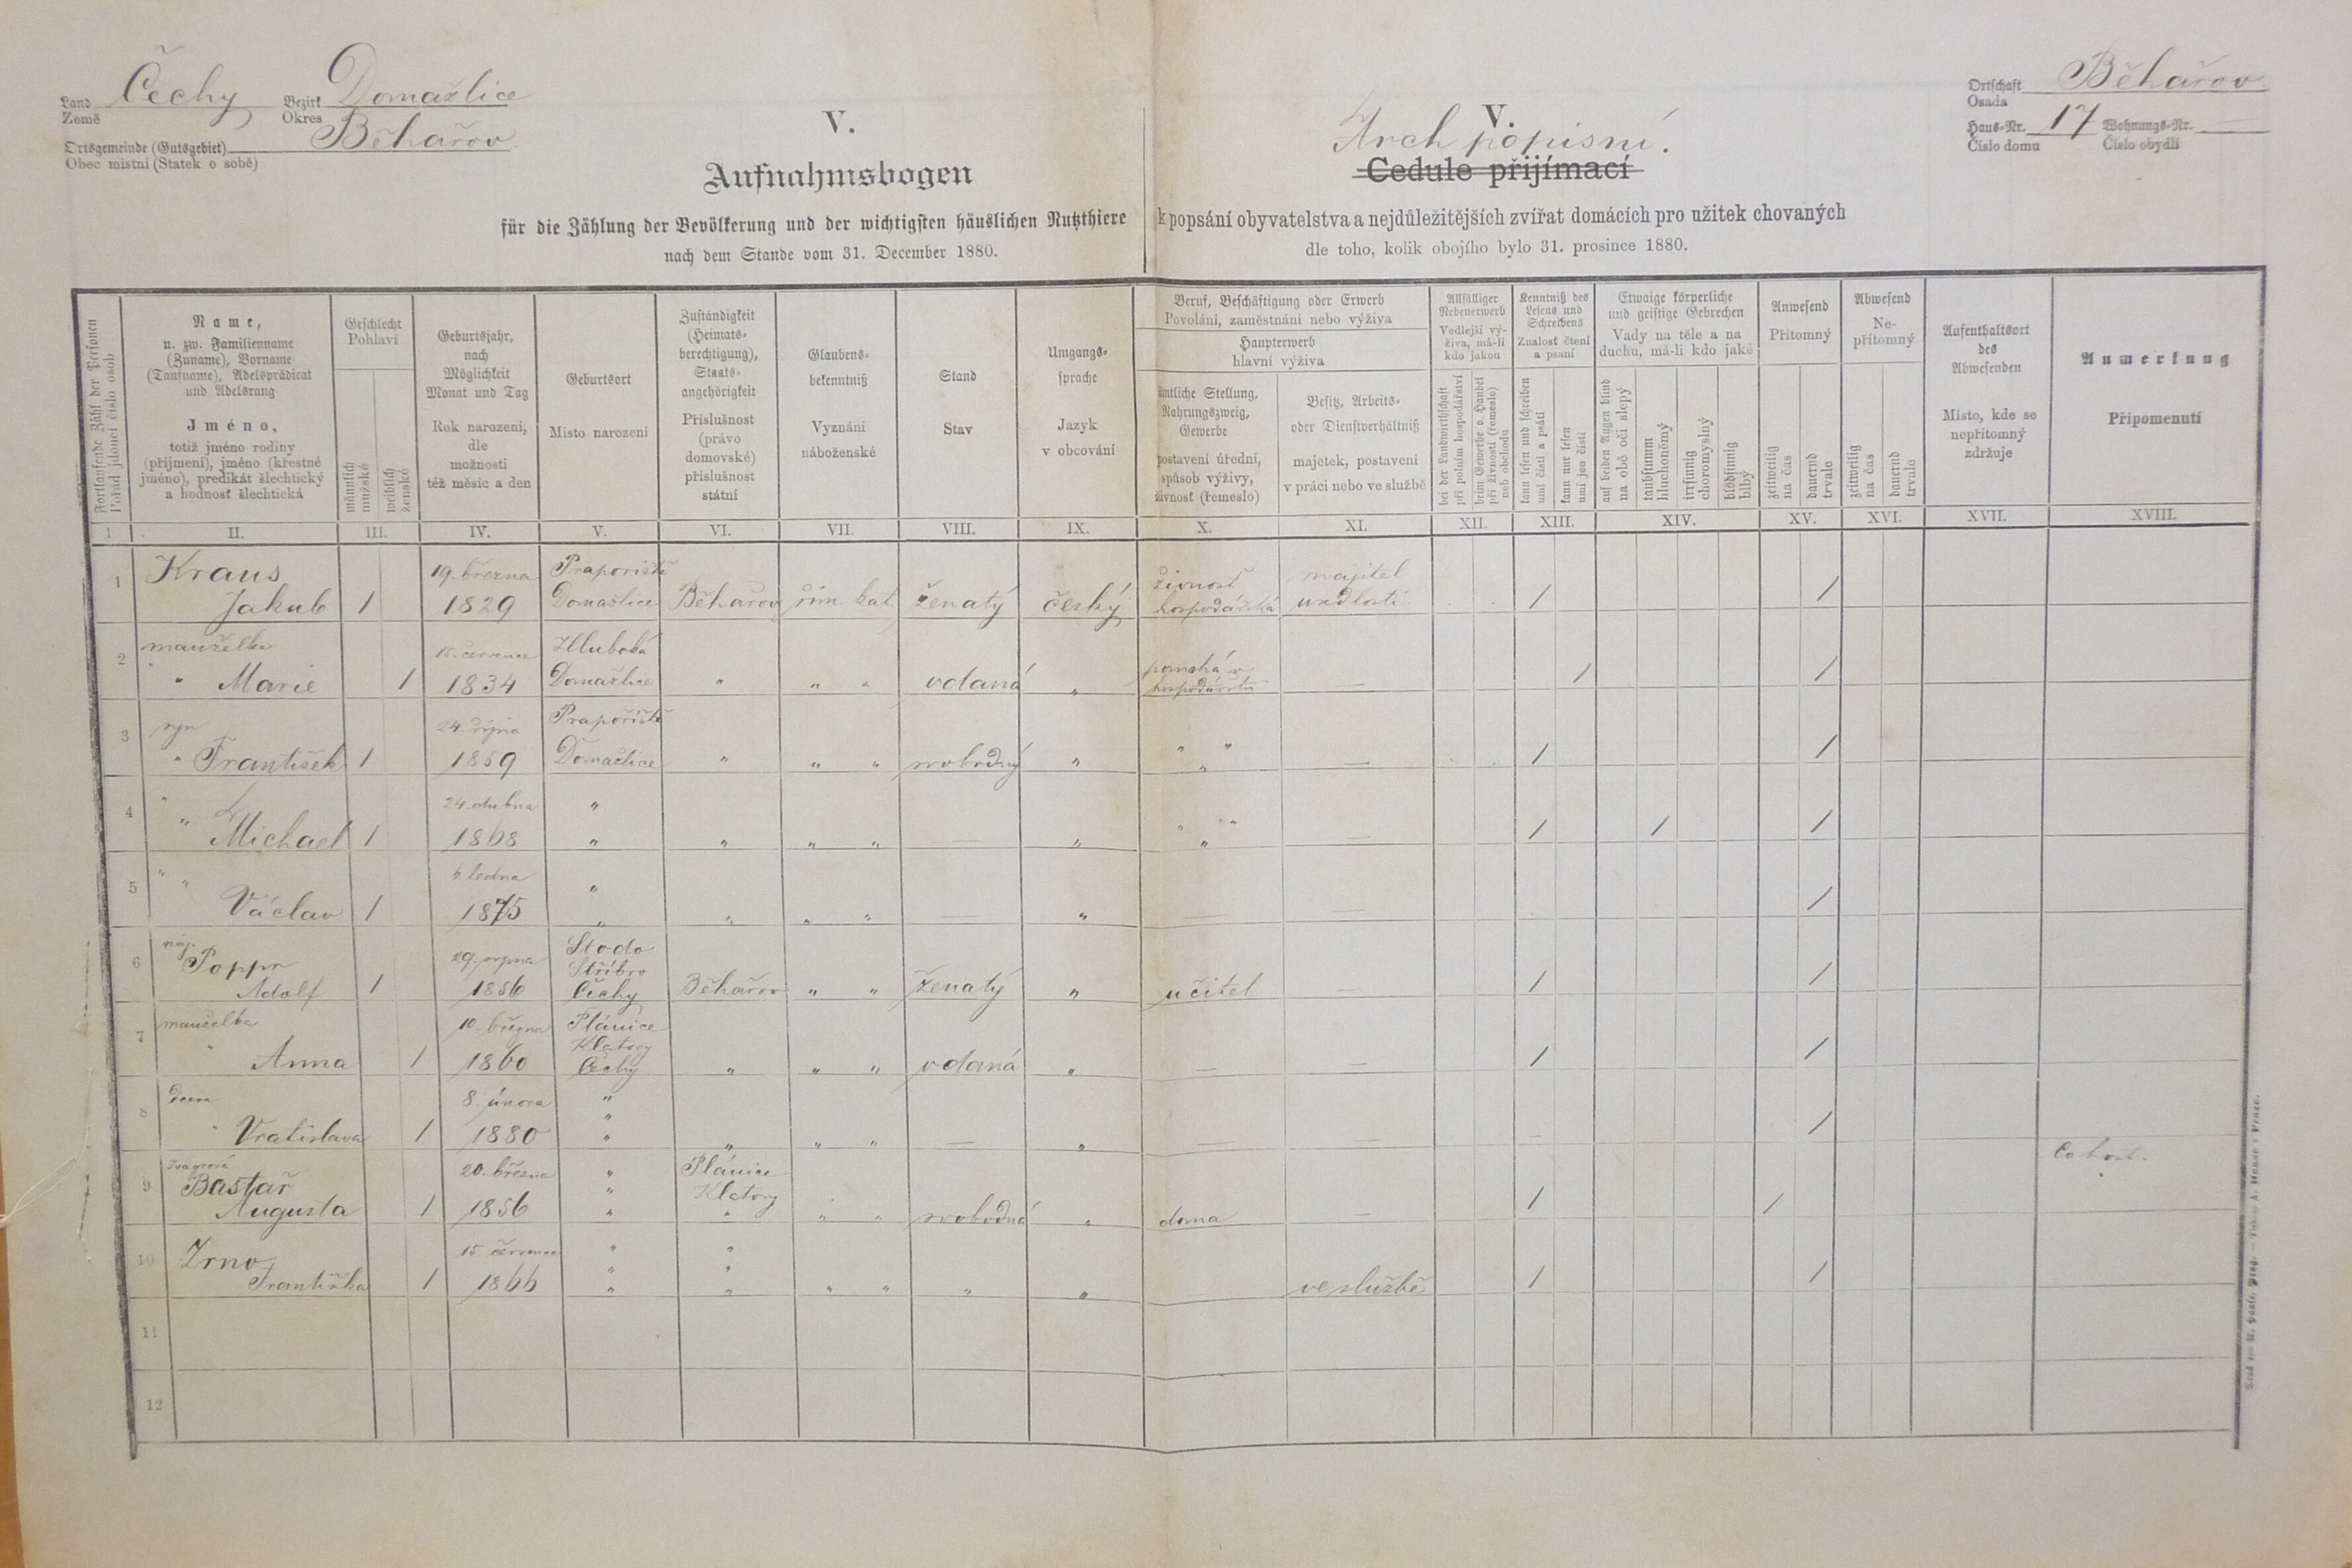 Land Země Čechy Bezirk Okres Domažlice
Ortsgemeinde (Gutsgebiet) Běhařov
Obec místní (Statek o sobě)
V.
Aufnahmsbogen
für die Zählung der Bevölkerung und der wichtigsten häuslichen Nutzthiere
nach dem Stande vom 31. December 1880.
V.
Arch popisní.
Cedule přijímací
k popsání obyvatelstva a nejdůležitějších zvířat domácích pro užitek chovaných
dle toho, kolik obojího bylo 31. prosince 1880.
Ortschaft Osada Běhařov
Haus-Nr. 17 Wohnungs-Nr. —
Číslo domu Číslo obydlí
Fortlaufende Zahl der Personen
Pořád jdoucí číslo osob
Name,
u. zw. Familienname
(Zuname), Vorname
(Taufname), Adelsprädicat
und Adelsrang
Jméno,
totiž jméno rodiny
(příjmení), jméno (křestné
jméno), predikát šlechtický
a hodnosť šlechtická
Geschlecht
Pohlaví
männlich
mužské
weiblich
ženské
Geburtsjahr,
nach
Möglichkeit
Monat und Tag
Rok narození,
dle
možnosti
též měsíc a den
Geburtsort
Místo narození
Zuständigkeit
(Heimats-
berechtigung),
Staats-
angehörigkeit
Příslušnost
(právo
domovské)
příslušnost
státní
Glaubens-
bekenntniß
Vyznání
náboženské
Stand
Stav
Umgangs-
sprache
Jazyk
v obcování
Beruf, Beschäftigung oder Erwerb
Povolání, zaměstnání nebo výživa
Haupterwerb
hlavní výživa
ämtliche Stellung,
Nahrungszweig,
Gewerbe
postavení úřední,
spůsob výživy,
živnosť (řemeslo)
Besitz, Arbeits-
oder Dienstverhältniß
majetek, postavení
v práci nebo ve službě
Allfälliger
Nebenerwerb
Vedlejší vý-
živa, má-li
kdo jakou
bei der Landwirthschaft
při polním hospodářství
beim Gewerbe o. Handel
při živnosti (řemesle)
neb obchodu
Kenntniß des
Lesens und
Schreibens
Znalosť čtení
a psaní
kann lesen und schreiben
umí čísti a psáti
kann nur lesen
umí jen čísti
Etwaige körperliche
und geistige Gebrechen
Vady na těle a na
duchu, má-li kdo jaké
auf beiden Augen blind
na obě oči slepý
taubstumm
hluchoněmý
irrsinnig
choromyslný
blödsinnig
blbý
Anwesend
Přítomný
zeitweilig
na čas
dauernd
trvale
Abwesend
Ne-
přítomný
zeitweilig
na čas
dauernd
trvale
Aufenthaltsort
des
Abwesenden
Místo, kde se
nepřítomný
zdržuje
Anmerkung
Připomenutí
I II. III. IV. V. VI. VII. VIII. IX. X. XI. XII. XIII. XIV. XV. XVI. XVII. XVIII.
1 Kraus 19. března Prapořiště živnosť majitel
Jakub 1 1829 Domažlice Běhařov řím. kat. ženatý český hospodářská usedlosti / /
2 manželka 15. července Hluboká pomáhá v
" Marie 1 1834 Domažlice " " " vdaná " hospodářství — / /
3 syn 24. října Prapořiště " "
" František 1 1859 Domažlice " " " svobodný " " — / /
4 " 24. dubna " " "
" Michael 1 1868 " " " " — " " — / / /
5 " " 6. ledna "
Václav 1 1875 " " " " — " — — /
6 náj. Poppr 29. srpna Stodo Stříbro
Adolf 1 1856 Čechy Běhařov " " ženatý " učitel — / /
7 manželka 10. března Plánice Klatovy
" Anna 1 1860 Čechy " " " vdaná " — — / /
8 dcera 8. února " "
" Vratislava 1 1880 " " " " — " — — – /
9 švagrová Bastař 20. března " " Plánice Klatovy Co host.
Augusta 1 1856 " " " " svobodná " doma — / /
10 Zrno 15. července " " " "
Františka 1 1866 " " " " " " ve službě / /
11
12